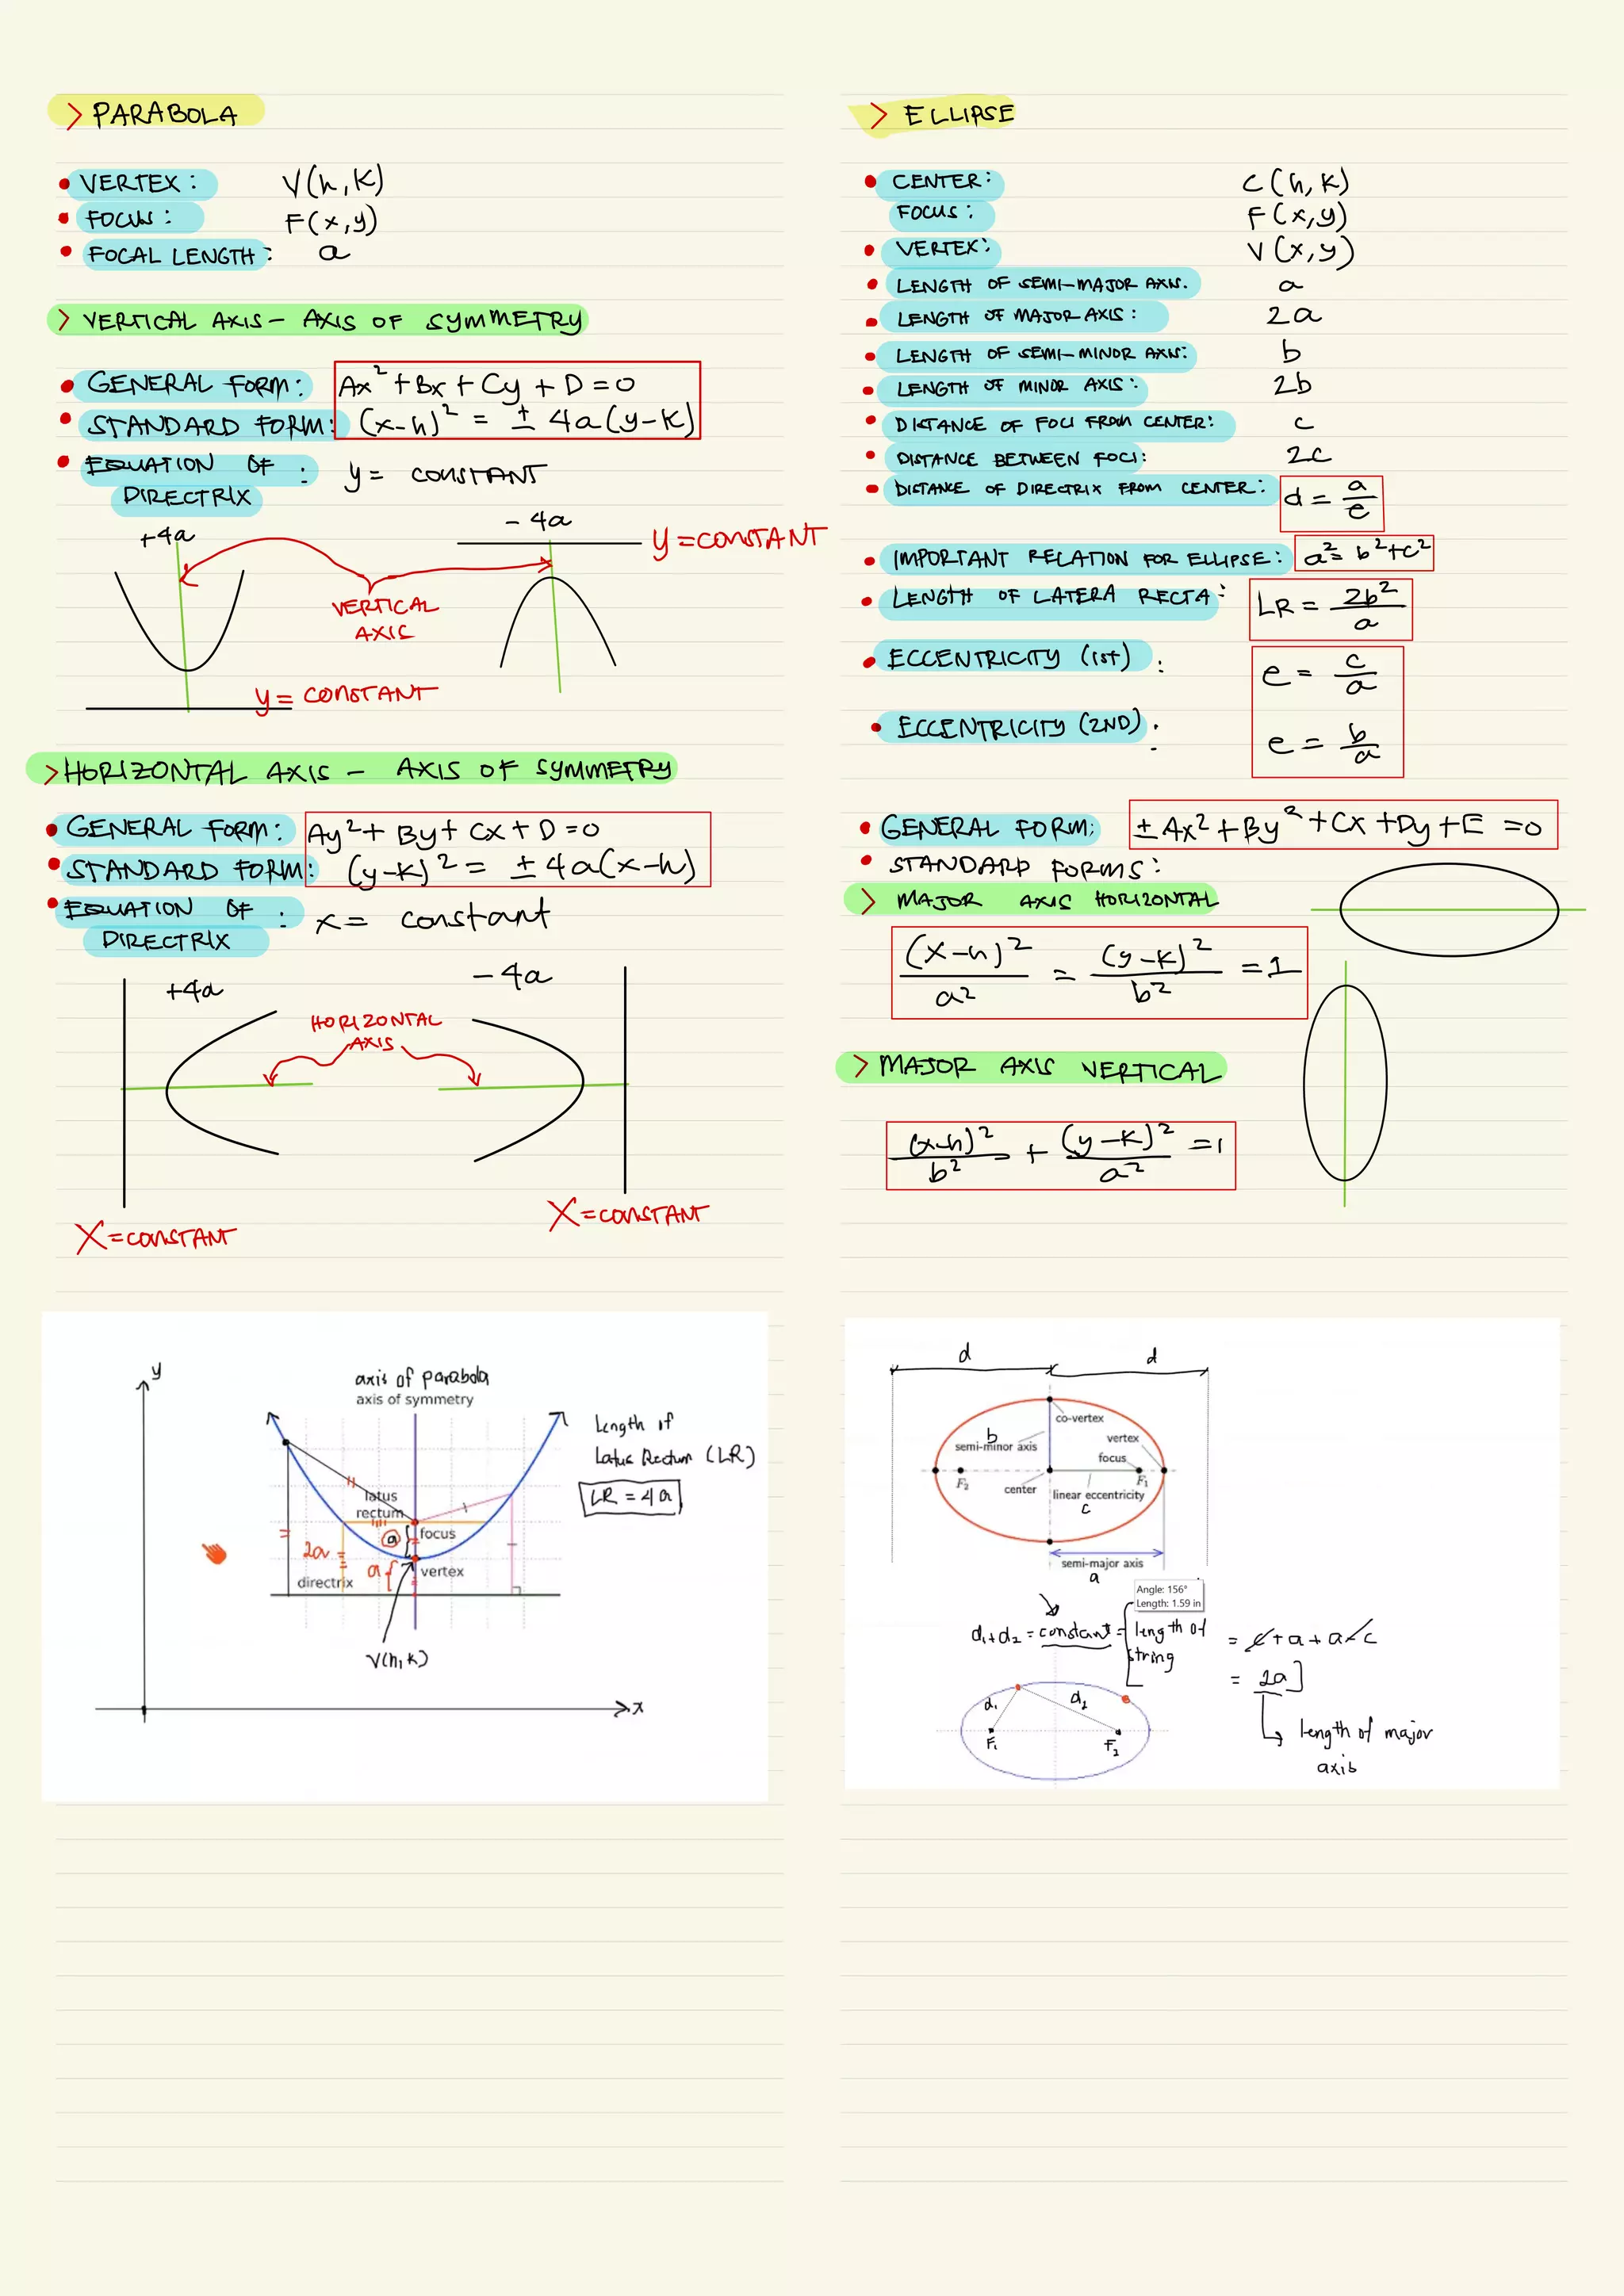 > PARABOLA
• VERTEX: V(h,k)
• FOCUS: F(x,y)
• FOCAL LENGTH: a
> VERTICAL AXIS - AXIS OF SYMMETRY
• GENERAL FORM: Ax² + Bx + Cy + D = 0
• STANDARD FORM: (x-h)² = ± 4a(y-k)
• EQUATION OF DIRECTRIX : y = CONSTANT
+4a
- 4a
y = CONSTANT
VERTICAL
AXIS
y = CONSTANT
> HORIZONTAL AXIS - AXIS OF SYMMETRY
• GENERAL FORM: Ay² + By + Cx + D = 0
• STANDARD FORM: (y-k)² = ± 4a(x-h)
• EQUATION OF DIRECTRIX : x = constant
+4a
- 4a
HORIZONTAL
AXIS
X = CONSTANT
X = CONSTANT
y
axis of parabola
axis of symmetry
Length of
Latus Rectum (LR)
LR = 4a
latus
rectum
a
focus
2a =
a
vertex
directrix
V(h,k)
x
> ELLIPSE
• CENTER: C(h,k)
FOCUS: F(x,y)
• VERTEX: V(x,y)
• LENGTH OF SEMI-MAJOR AXIS. a
• LENGTH OF MAJOR AXIS: 2a
• LENGTH OF SEMI-MINOR AXIS: b
• LENGTH OF MINOR AXIS: 2b
• DISTANCE OF FOCI FROM CENTER: c
• DISTANCE BETWEEN FOCI: 2c
• DISTANCE OF DIRECTRIX FROM CENTER: d = a/e
• IMPORTANT RELATION FOR ELLIPSE: a² = b²+c²
• LENGTH OF LATERA RECTA: LR = 2b²/a
• ECCENTRICITY (1st) : e = c/a
• ECCENTRICITY (2ND) : e = b/a
• GENERAL FORM: ± Ax² + By² + Cx + Dy + E = 0
• STANDARD FORMS:
> MAJOR AXIS HORIZONTAL
(x-h)²/a² = (y-k)²/b² = 1
> MAJOR AXIS VERTICAL
(x-h)²/b² + (y-k)²/a² = 1
d
d
co-vertex
b
semi-minor axis
vertex
focus
F2
center
F1
linear eccentricity
c
semi-major axis
a
Angle: 156°
Length: 1.59 in
d1 + d2 = constant = length of string = c + a + a - c
= 2a
length of major
axis
d1
d2
F1
F2